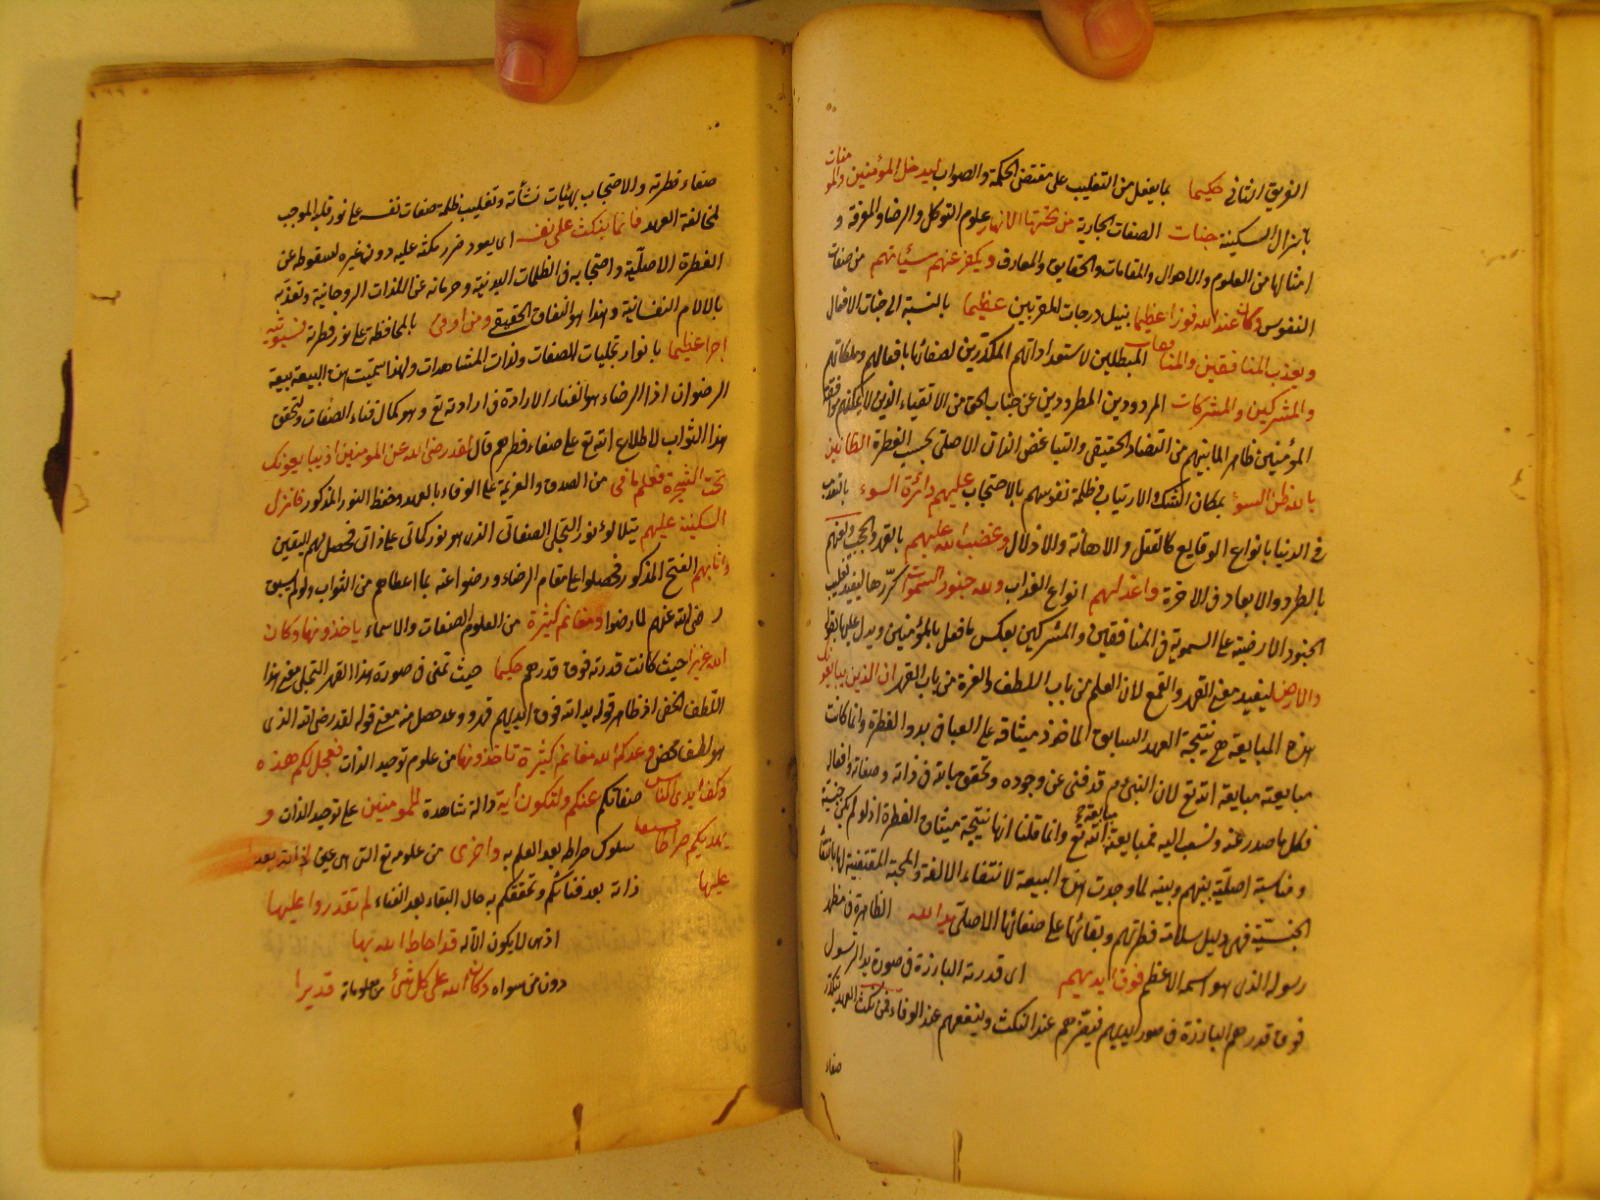 الفريق الثاني حكيما بما يفعل من التغليب على مقتضى الحكمة والصواب ليدخل المؤمنين والمؤمنات
بانزال السكينة جنات الصفات الجارية من تحتها الانهار علوم التوكل والرضا والمعرفة و
امثالها من العلوم والاحوال والمقامات والحقايق والمعارف ويكفر عنهم سيئاتهم من صفات
النفوس وكان عند الله فوزا عظيما بنيل درجات المقربين عظيما بالنسبة الى جنات الافعال
ويعذب المنافقين والمنافقات المبطلين لاستعداداتهم المكدرين لصفائها بافعالهم وملكاتهم
والمشركين والمشركات المردودين المطرودين عن جناب الحق من الاتقياء الذين لا يمكنهم موافقة
المؤمنين ظاهرا لما بينهم من التضاد الحقيقي والتباغض الذاتي الاصلى بحسب الفطرة الظانين
بالله ظن السوء بمكان الشك والارتياب في ظلمة نفوسهم بالاحتجاب عليهم دائرة السوء بالتعذيب
في الدنيا بانواع الوقايع كالقتل والاهانة والاذلال وغضب الله عليهم بالقهر والحجب ولعنهم
بالطرد والابعاد في الاخرة واعد لهم انواع العذاب ولله جنود السموات كررها ليفيد تغليب
الجنود الارضية على السموية في المنافقين والمشركين بعكس ما فعل بالمؤمنين وبدل عليها بقوله
والارض ليفيد معنى القهر والقمع لان العلم من باب اللطف والعزة من باب القهر ان الذين يبايعونك
هذه المبايعة هي نتيجة العهد السابق الماخوذ ميثاقه على العباد في بدو الفطرة وانما كانت
مبايعته مبايعة الله تع لان النبي ءم قد فنى عن وجوده وتحقق بالله في ذاته وصفاته وافعاله
فكل ما صدر عنه ونسب اليه فمبايعته مبايعة الله تع وانما قلنا انها نتيجة ميثاق الفطرة اذ لو لم يكن جنسية
ومناسبة اصلية بينهم وبينه لما وجدت هذه البيعة لانتفاء الالفة والمحبة المقتضية لها بانتفاء
الجنسية فهى دليل سلامة فطرتهم وبقائها على صفائها الاصلى يد الله الظاهرة في مظهر
رسوله الذى هو اسمه الاعظم فوق ايديهم اى قدرته البارزة في صورة يد الرسول
فوق قدرهم البارزة في صور ايديهم فيضرهم عند النكث وينفعهم عند الوفاء فمن نكث العهد بتكدر
صفاء
صفاء فطرته والاحتجاب بهيئات نشأته وتغليب ظلمة صفات نفسه على نور قلبه الموجب
لمخالفة العهد فانما ينكث على نفسه اى يعود ضرر نكثه عليه دون غيره لسقوطه عن
الفطرة الاصلية واحتجابه في الظلمات البدنية وحرمانه عن اللذات الروحانية وتعذبه
بالالام النفسانية وهذا هو النفاق الحقيقي ومن اوفى بالمحافظة على نور فطرته فسيؤتيه
اجرا عظيما بانوار تجليات الصفات ولذات المشاهدات ولهذا سميت هذه البيعة بيعة
الرضوان اذا الرضاء هو الفناء الارادة في ارادته تع وهو كمال فناء الصفات وتحقق
هذا الثواب لاطلاع الله تع على صفاء فطرهم قال لقد رضى الله عن المؤمنين اذ يبايعونك
تحت الشجرة فعلم ما في من الصدق والعزيمة على الوفاء بالعهد وحفظ النور المذكور فانزل
السكينة عليهم بتلالؤ نور التجلى الصفاتى الذى هو نور كمالى على ذاتى فحصل لهم اليقين
واثابهم الفتح المذكور فحصلوا على مقام الرضاء ورضوا عنه بما اعطاهم من الثواب ولو لم يسبق
رضى الله عنهم لما رضوا ومغانم كثيرة من العلوم الصفات والاسماء ياخذونها وكان
الله عزيزا حيث كانت قدرته فوق قدرهم حكيما حيث تمنى في صورة هذا القهر التجلى معنى هذا
اللطف الخفى اذ ظاهر قوله يد الله فوق ايديهم قهر ووعد حصل منه معنى قوله لقد رضى الله الذى
هو لطف محض وعدكم الله مغانم كثيرة تاخذونها من علوم توحيد الذات فعجل لكم هذه
وكف ايدى الناس صفاتكم عنكم ولتكون آية دالة شاهدة للمؤمنين على توحيد الذات و
يهديكم صراطا مستقيما سلوك صراطه بعد العلم به واخرى من علومه تع التى هى عين
عليها ذاته بعد فنائكم وتحققكم به حال البقاء بعد الفناء لم تقدروا عليها
اذ هى لا يكون الا له قد احاط الله بها
دون من سواه وكان الله على كل شئ من معلوماته قديرا